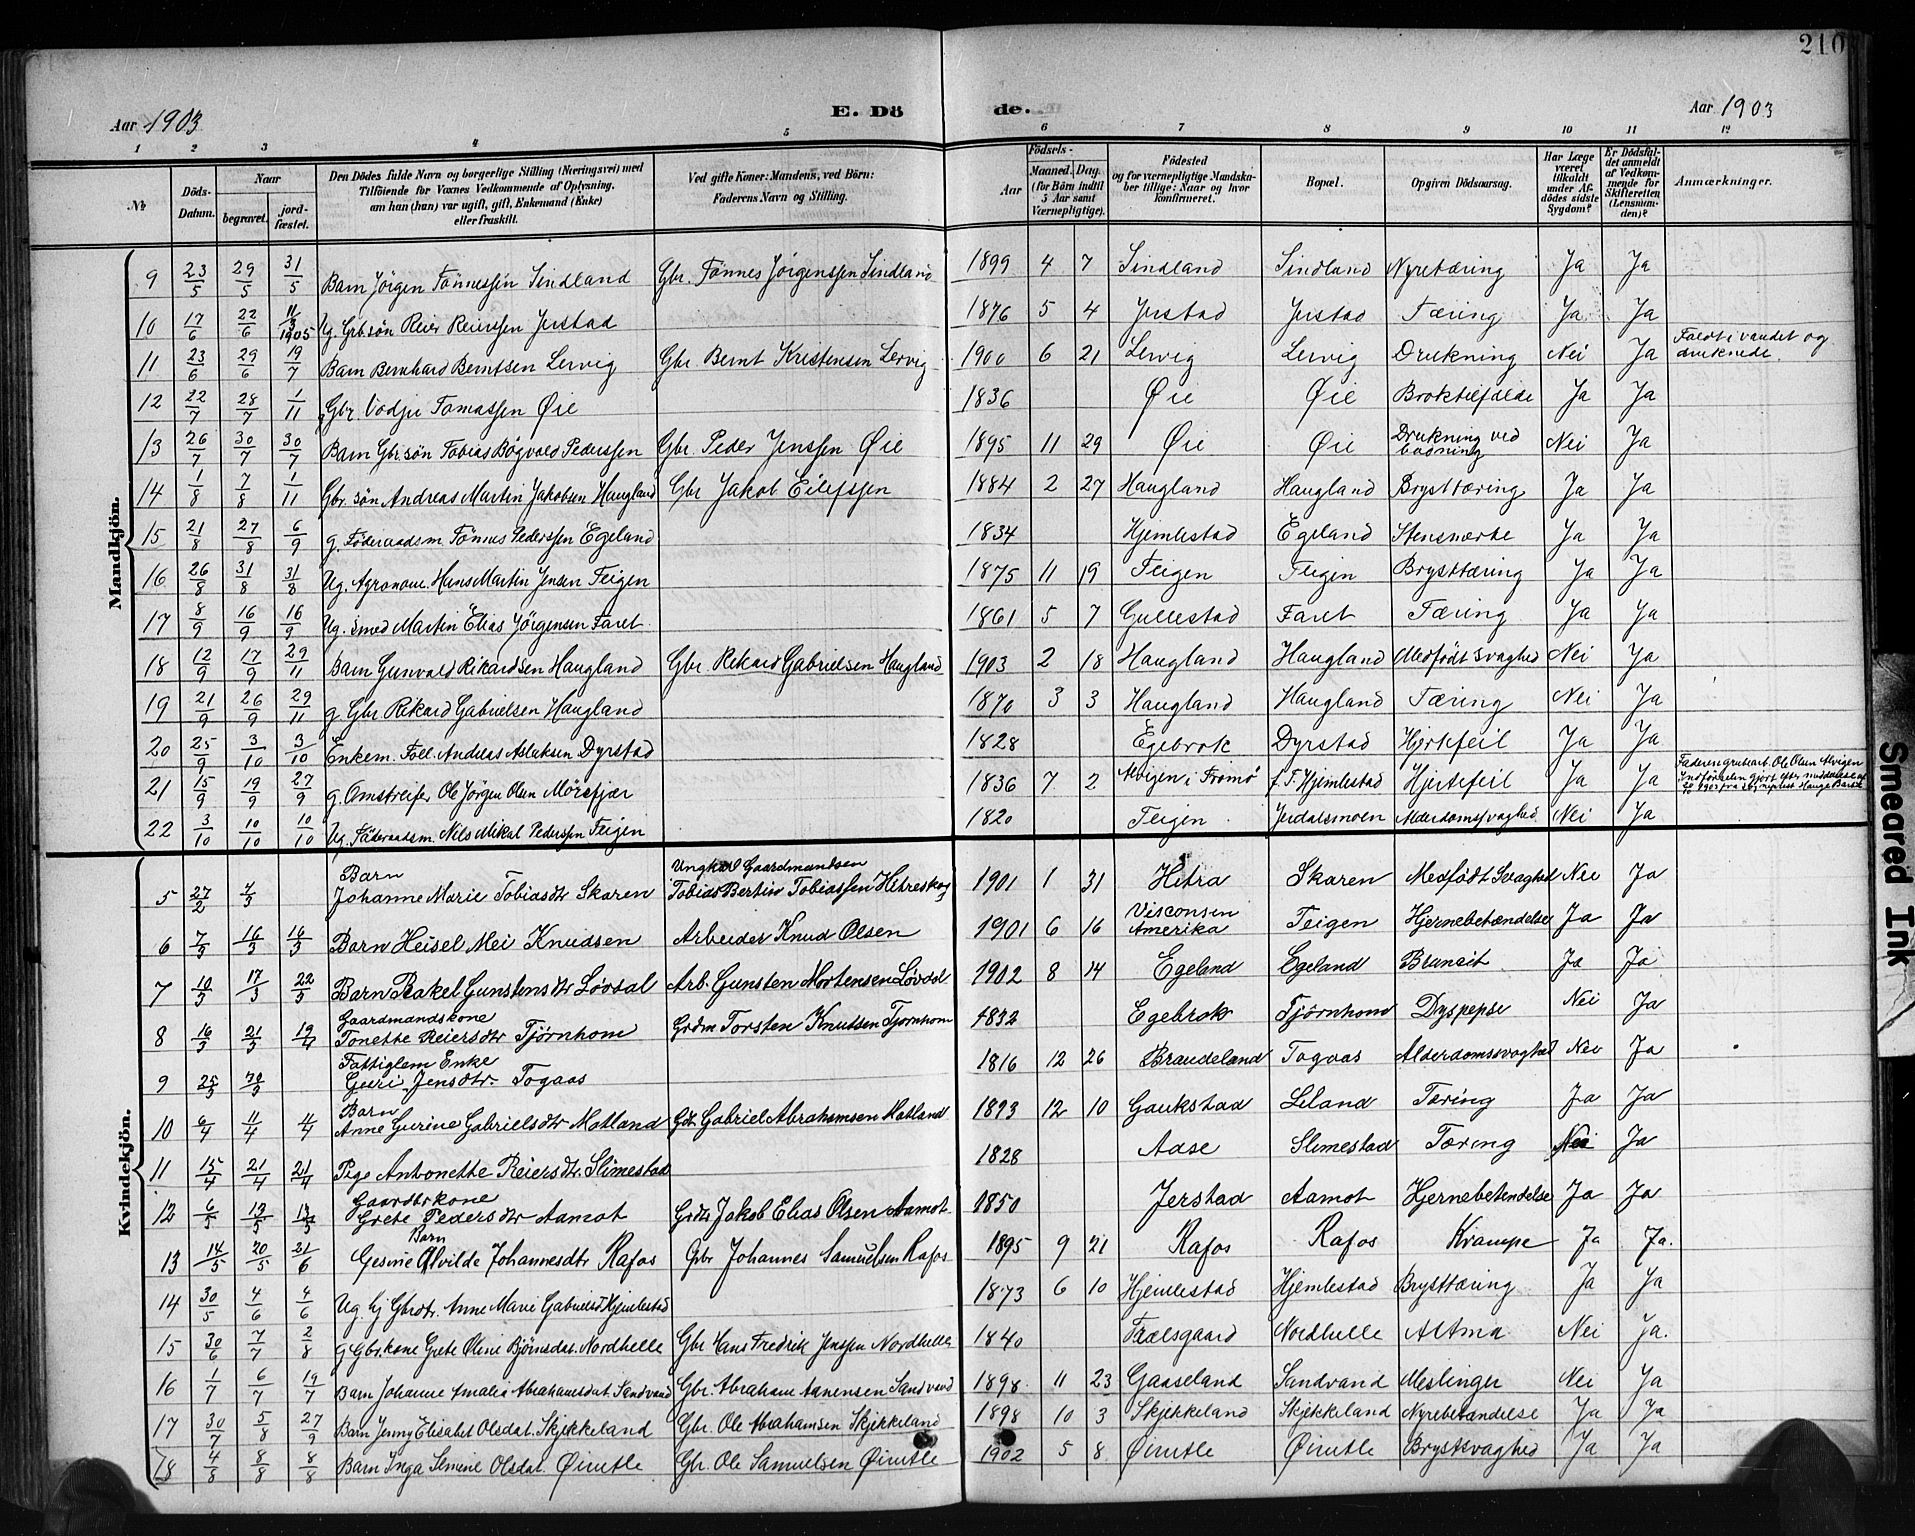 210
Aar 1903
E. Dö
de.
Aar 1903
1 2 3 4 5 6 7 8 9 10 11 12
№
Döds-Datum.
Naar
begravet.
jord-fæstet.
Den Dödes fulde Navn og borgerlige Stilling (Næringsvei) med
Tilföiende for Voxnes Vedkommende af Oplysning,
om han (hun) var ugift, gift, Enkemand (Enke)
eller fraskilt.
Ved gifte Koner: Mandens, ved Börn:
Faderens Navn og Stilling.
Födsels-
Aar
Maaned. Dag.
(for Börn indtil
5 Aar samt
Værnepligtige).
Födested
og for værnepligtige Mandska-
ber tillige: Naar og hvor
konfirmeret.
Bopæl.
Opgiven Dödsaarsag.
Har Læge
været
tilkaldt
under Af-
dödes sidste
Sygdom?
Er Dödsfal-
det anmeldt
af Vedkom-
mende for
Skifteretten
(Lensman-
den)?
Anmærkninger.
Mandkjön.
9 23/5 29/5 31/5 Barn Jörgen Tönnessen Sindland Gbr. Tönnes Jörgenssen Sindland 1899 4 7 Sindland Sindland Nyretæring Ja Ja
10 17/6 22/6 11/3 1905 Ug. Gbr.sön Reier Reierssen Jerstad 1876 5 4 Jerstad Jerstad Tæring Ja Ja
11 23/6 29/6 19/7 Barn Bernhard Berntsen Lervig Gbr. Bernt Kristensen Lervig 1900 6 21 Lervig Lervig Drukning Nei Ja Faldt i vandet og druknede.
12 22/7 28/7 1/11 Gbr. Vodje Tomassen Øie 1836 Øie Øie Broktilfælde Ja Ja
13 26/7 30/7 30/7 Barn Gbr.sön Tobias Bögvald Pederssen Gbr. Peder Jenssen Øie 1895 11 29 Øie Øie Drukning ved badning Nei Ja
14 1/8 7/8 1/11 Gbr. sön Andreas Martin Jakobsen Haugland Gbr Jakob Eilefssen 1884 2 27 Haugland Haugland Brysttæring Ja Ja
15 21/8 27/8 6/9 g. Föderaadsm Tönnes Pederssen Egeland 1834 Hjemlestad Egeland Stensmerte Ja Ja
16 26/8 31/8 31/8 Ug. Agronom. Hans Martin Jensen Teigen 1875 11 19 Teigen Teigen Brysttæring Ja Ja
17 8/9 16/9 16/9 Ug. Smed Martin Elias Jörgensen Faret. 1861 5 7 Gullestad Faret Tæring Ja Ja
18 12/9 17/9 29/11 Barn Gunvald Rikardsen Haugland Gbr Rikard Gabrielsen Haugland 1903 2 18 Haugland Haugland Medfödt Svaghed Nei Ja
19 21/9 26/9 29/11 g Gbr Rikard Gabrielsen Haugland 1870 3 3 Haugland Haugland Tæring Nei Ja
20 25/9 3/10 3/10 Enkem. Föll. Andreas Aslaksen Dyrstad 1828 Egebrok Dyrstad Hjertefeil Ja Ja
21 15/9 19/9 27/9 g. Omstreifer Ole Jörgen Olsen Mörefjær 1836 7 2 Alvigen i Tromö f. T. Hjemlestad Hjertefeil Ja Ja
22 3/10 10/10 10/10 Ug. Föderaadsm. Nils Mikal Pederssen Teigen 1820 Teigen Jerdalsmoen Alderdomssvaghed Nei Ja
Kvindekjön.
5 27/2 4/3 Barn Johanne Marie Tobiasdtr Skaren Ungkal Gaardmandsen Tobias Bertin Tobiassen Hitreskog 1901 1 31 Hitra Skaren Medfödt Svaghed Nei Ja
6 7/3 16/3 16/3 Barn Heisel Mei Knudsen Arbeider Knud Olsen 1901 6 16 Visconsen Amerika Teigen Hjernebetændelse Ja Ja
7 10/3 17/3 22/3 Barn Rakel Gunstensdtr Lövdal Arb. Gunsten Mortensen Lövdal 1902 8 14 Egeland Egeland Brunsit Ja Ja
8 16/3 21/3 19/4 Gaardmandskone Tonette Reiersdtr Tjörnhom Grdm Torsten Knutsen Tjörnhom 1832 Egebrok Tjörnhom Dyspepse Nei Ja
9 25/3 30/3 Fattiglem Enke Guri Jensdtr. Togaas 1816 12 26 Braudeland Togaas Alderdomssvaghed Nei Ja
10 6/4 11/4 4/4 Barn Anne Gurine Gabrielsdtr Matland Gdr Gabriel Abrahamsen Matland 1893 12 10 Gaukstad Leland Tæring Ja Ja
11 15/4 21/4 21/4 Pige Antonette Reiersdtr Slimestad 1828 Aase Slimestad Tæring Nei Ja
12 6/5 13/5 13/5 Gaardbrkone Grete Pedersdtr Aamot Grdbr Jakob Elias Olsen Aamot. 1850 Jerstad Aamot Hjernebetendelse Ja Ja
13 14/5 20/5 21/6 Barn Gesine Alvilde Johannesdtr Rafos Gbr Johannes Samuelsen Rafos 1895 9 21 Rafos Rafos Krampe Ja Ja.
14 30/5 4/6 4/6 Ug. hj Gbrdtr. Anne Marie Gabrielsd Hjemlestad 1873 6 10 Hjemlestad Hjemlestad Brysttæring Ja Ja
15 30/6 7/7 2/8 g Gbr.kone Grete Oline Björnsdat. Nordhelle Gbr Hans Fredrik Jenssen Nordhelle 1840 Trælsgaard Nordhelle Astma Nei Ja.
16 1/7 6/7 19/7 Barn Johanne Amalia Abrahamsdat. Sandvand Gbr. Abraham Aanensen Sandvand 1898 11 23 Gaaseland Sandvand Meslinger Nei Ja
17 30/7 5/8 27/9 Barn Jenny Elisabet Olsdat. Skjekkeland Gbr. Ole Abrahamsen Skjekkeland 1898 10 3 Skjekkeland Skjekkeland Nyrebetændelse Ja Ja
18 4/8 8/8 8/8 Barn Inga Semine Olsdat. Øimtle Gbr. Ole Samuelsen Øimtle 1902 5 8 Øimtle Øimtle Brystsvaghed Ja Ja
Smeared Ink